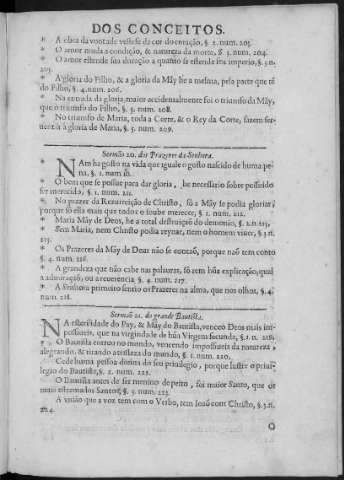 DOS CONCEITOS.
* A alma da vontade veste-se da cor do coração, § 2. num. 203.
* O amor muda a condição, & natureza da morte, § 3. num. 204.
* O amor estende sua duração a quanto se estende seu imperio, § 3. n.
205.
* A gloria do Filho, & a gloria da Mãy he a mesma, pela parte que tẽ
do Filho, § 4. num. 206.
* Na entrada da gloria, maior accidentalmente foi o triunfo da Mãy,
que o triunfo do Filho, § 5. num. 208.
* No triunfo de Maria, toda a Corte, & o Rey da Corte, fazem
à gloria de Maria, § 5. num. 209.
Sermão 20. dos Prazeres da Senhora.
* NAm ha gosto na vida que iguale o gosto nascido de huma pe-
na, § 1. num.
O bem que se possue para dar gloria, he necessario sobre possuido
ser merecido, § 1. num. 211.
* No prazer da Resurreição de Christo, só a Mãy se podia gloriar,
porque só ella mais que todos o soube merecer, § 1. num. 212.
* Maria Mãy de Deos, he a total destruição do demonio, § 2. n. 213.
* Sem Maria, nem Christo podia reynar, nem o homem viver, § 3. n.
215.
* Os Prazeres da Mãy de Deus não se contaõ, porque naõ tem conto
§ 4. num. 216.
* A grandeza que não cabe nas palavras, só tem hũa explicação, qual
a admiração, ou a reverencia § 4. num. 217.
* A Senhora primeiro sentio os Prazeres na alma, que nos olhos, § 4.
num. 218.
Sermão 21. do grande Bautista.
* NA esterilidade do Pay, & Mãy do Bautista, venceo Deos mais im-
possiveis, que na virgindade de hũa Virgem fecunda, § 1. n. 218.
* O Bautista entrou no mundo, vencendo impossiveis da natureza,
alegrando, & tirando a tristeza do mundo, § 1. num. 220.
Cede huma pessoa direitos do seu privilegio, porque lustre o privi-
legio do Bautista, § 2. num. 222.
O Bautista antes de ser menino de peito, foi maior Santo, que os
mais estremados Santos, § 3. num. 223.
A união que a voz tem com o Verbo, tem Joaõ com Christo, § 3. n.
224.
O